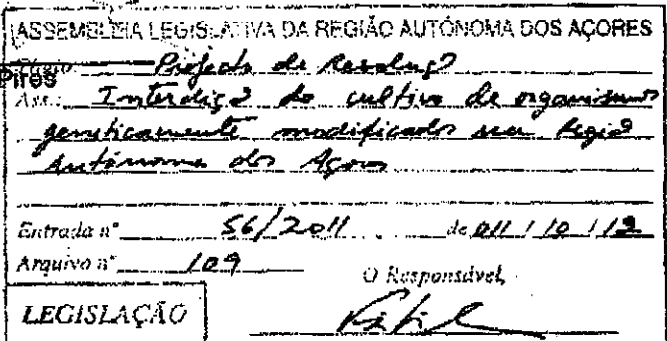 ASSEMBLEIA LEGISLATIVA DA REGIÃO AUTÓNOMA DOS AÇORES
Pires
Título: Projecto de Resoluçã
Ass.: Interdiçã do cultivo de organismos
geneticamente modificados na Regiã
Autónoma dos Açores
Entrada nº 56/2011 de 011/10/12
Arquivo nº 109
O Responsável,
LEGISLAÇÃO